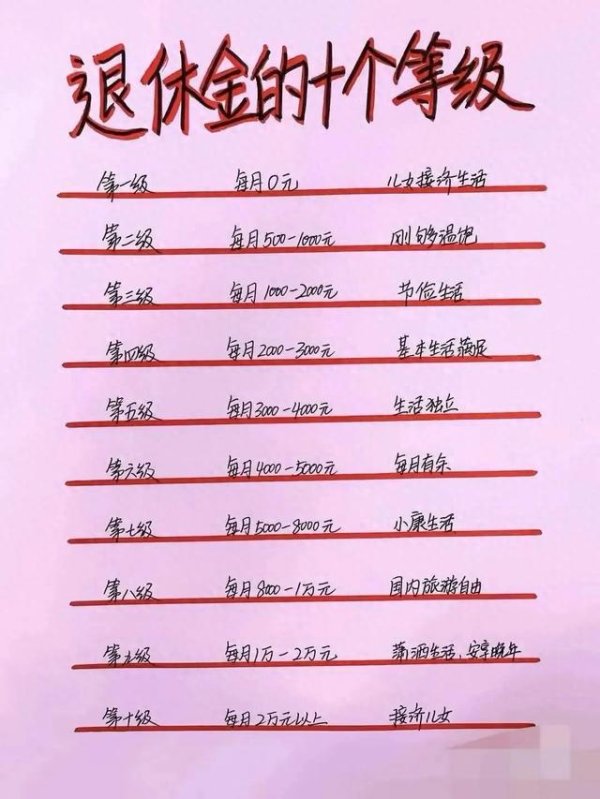 退休金的十个等级
第一级 每月0元 儿女接济生活
第二级 每月500-1000元 刚够温饱
第三级 每月1000-2000元 节俭生活
第四级 每月2000-3000元 基本生活满足
第五级 每月3000-4000元 生活独立
第六级 每月4000-5000元 每月有余
第七级 每月5000-8000元 小康生活
第八级 每月8000-1万元 国内旅游自由
第九级 每月1万-2万元 潇洒生活、安享晚年
第十级 每月2万元以上 接济儿女